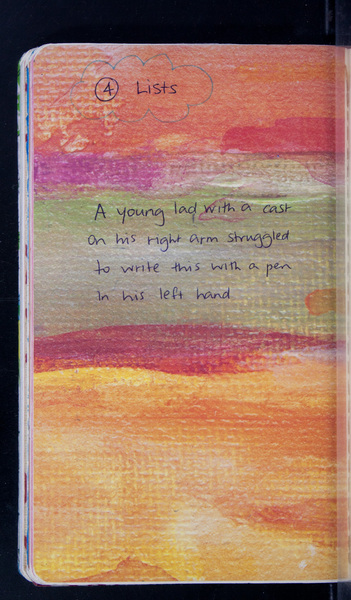 4 Lists
A young lad with a cast
on his right arm struggled
to write this with a pen
in his left hand